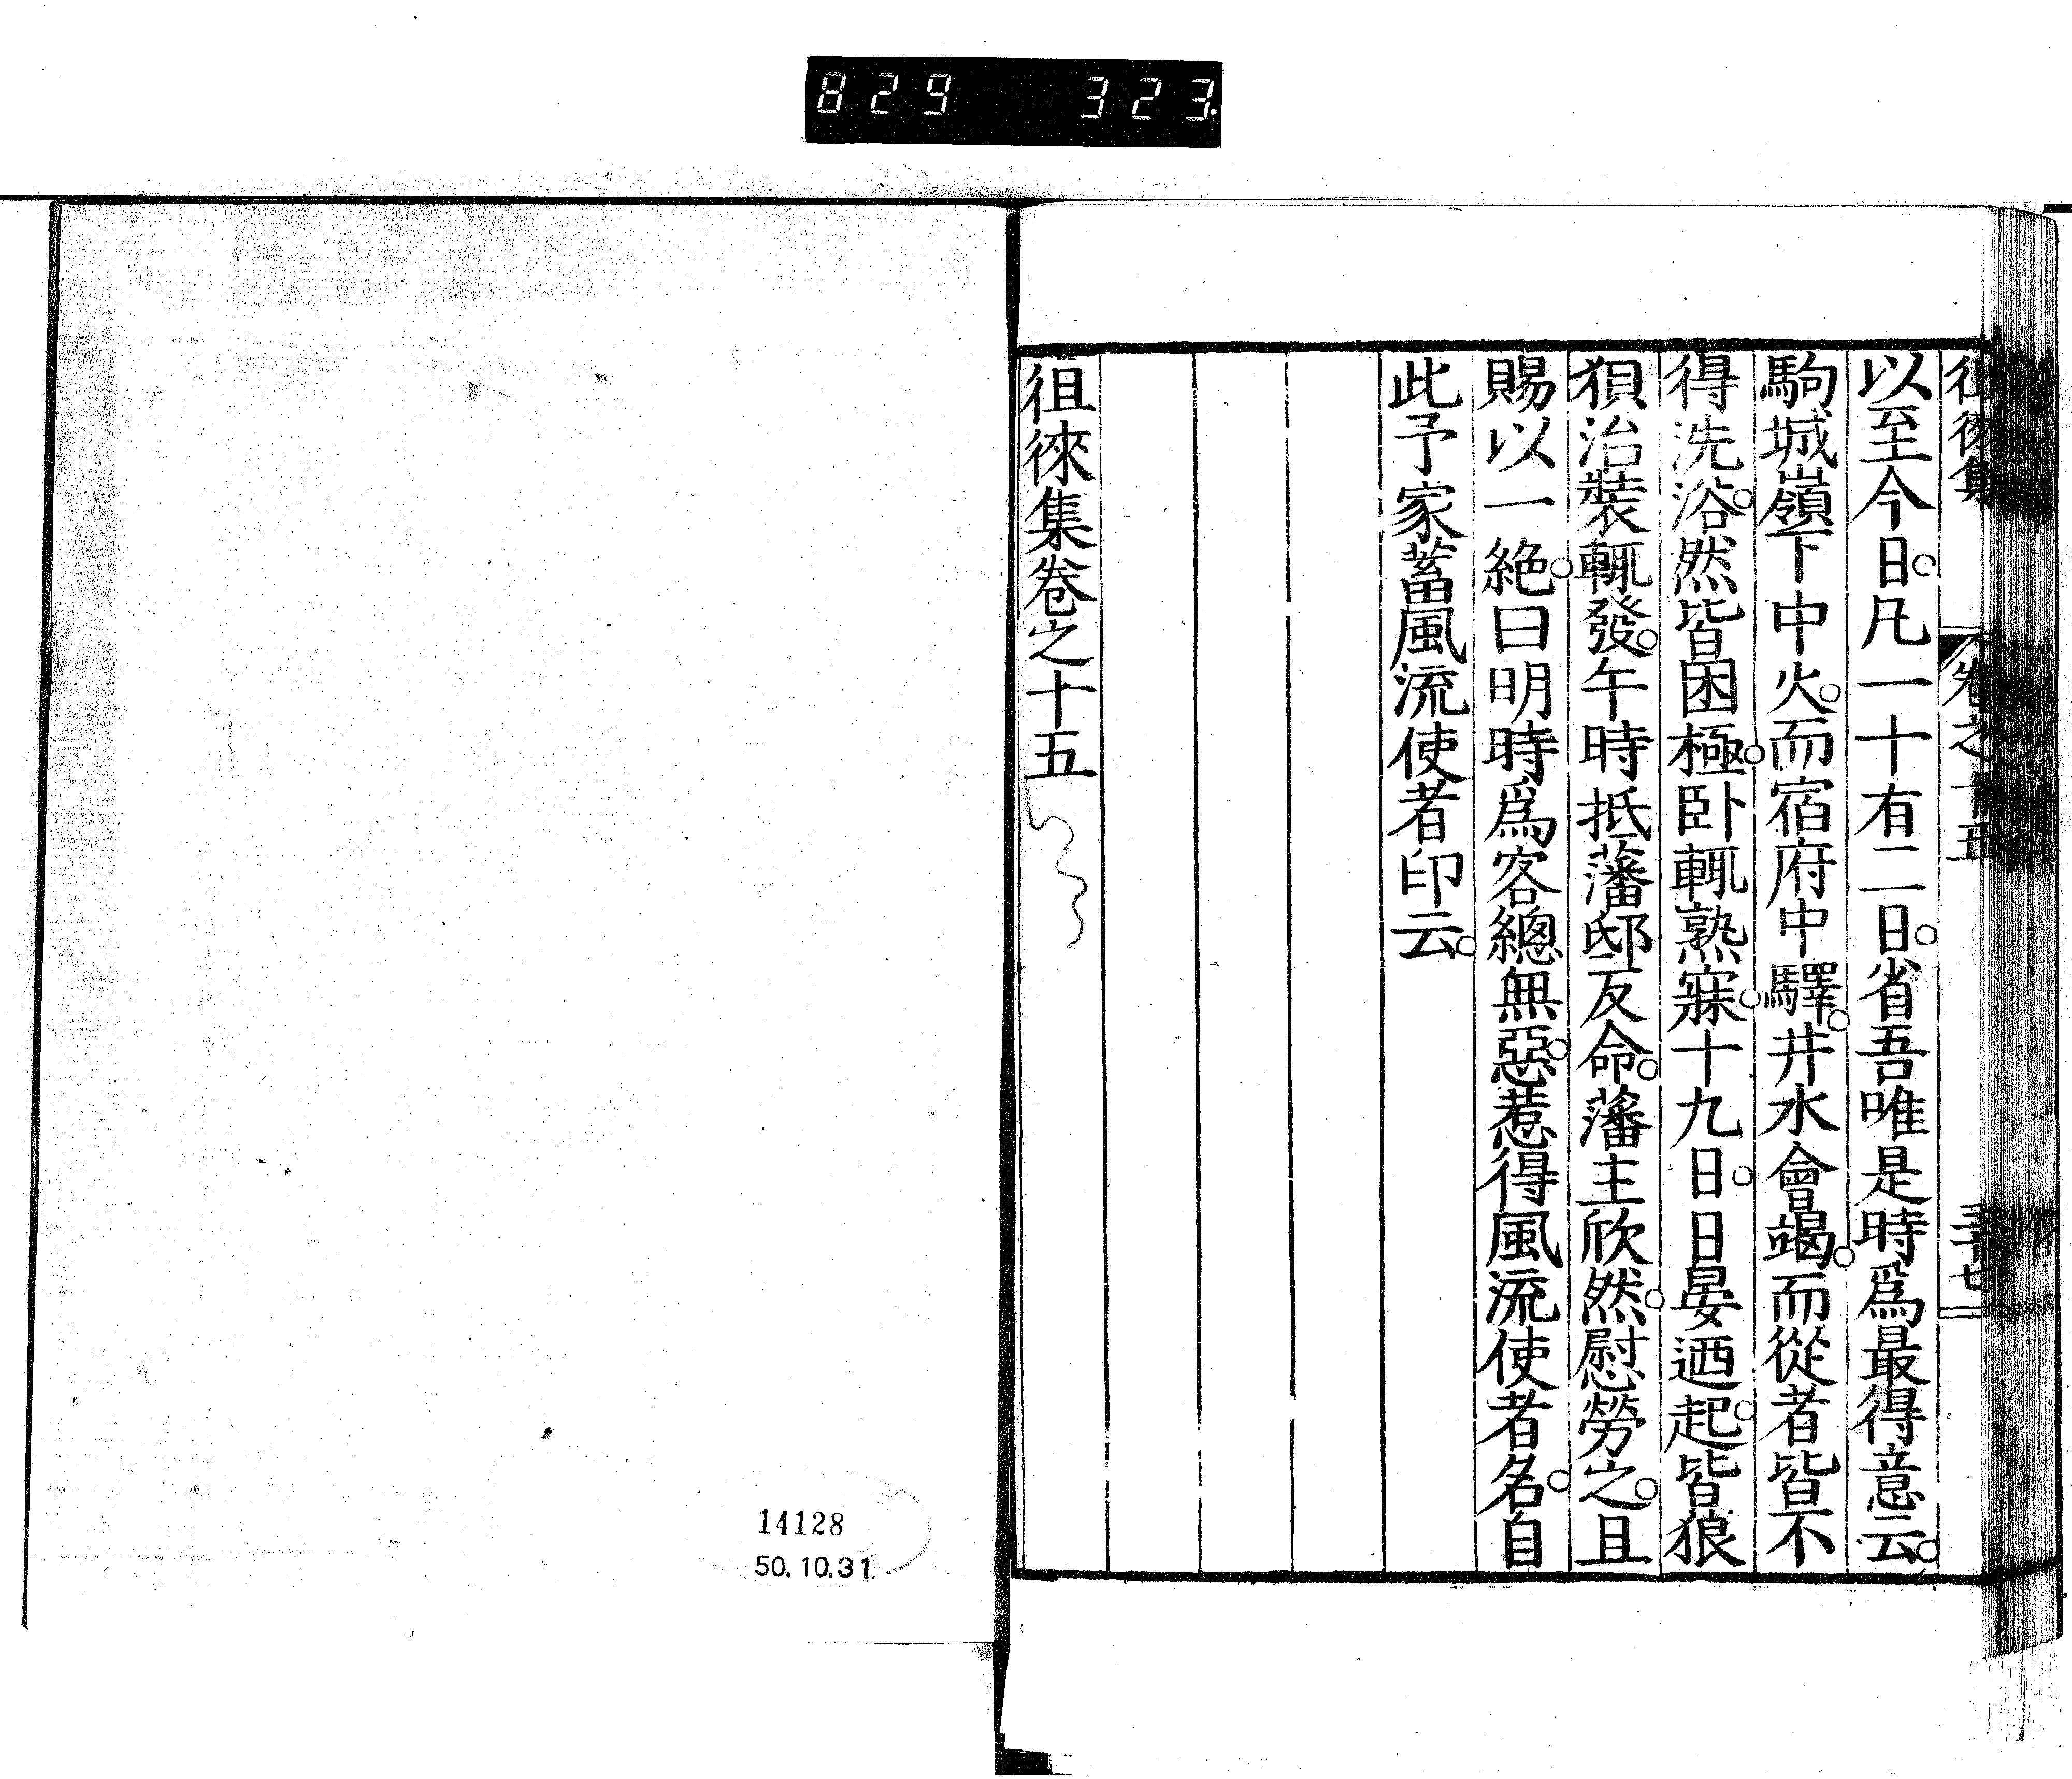 829 323
徂徠集 卷之十五 三十七
以至今日。凡一十有二日。省吾唯是時爲最得意云。
駒城嶺下中火。而宿府中驛。井水會竭。而從者皆不
得洗浴。然皆困極。卧輒熟寐。十九日。日晏迺起。皆狼
狽治裝輒發。午時抵藩邸反命。藩主欣然。慰勞之。且
賜以一絶。曰明時爲客總無惡。惹得風流使者名。自
此予家蓄風流使者印云。
徂徠集卷之十五
14128
50.10.31